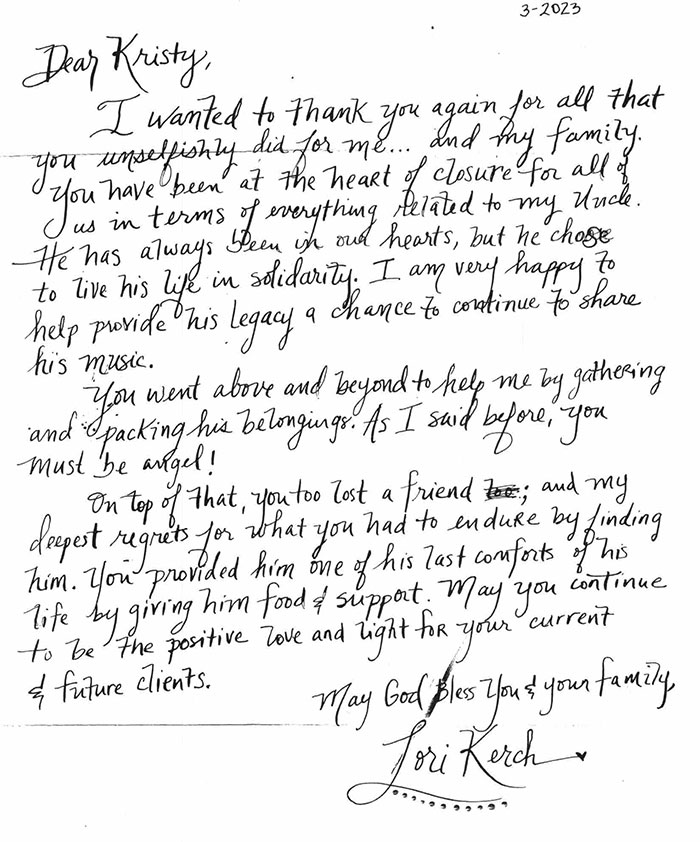 3-2023
Dear Kristy,
I wanted to thank you again for all that
you unselfishly did for me... and my family.
You have been at the heart of closure for all of
us in terms of everything related to my Uncle.
He has always been in our hearts, but he chose
to live his life in solidarity. I am very happy to
help provide his legacy a chance to continue to share
his music.
You went above and beyond to help me by gathering
and packing his belongings. As I said before, you
must be angel!
On top of that, you too lost a friend too; and my
deepest regrets for what you had to endure by finding
him. You provided him one of his last comforts of his
life by giving him food & support. May you continue
to be the positive love and light for your current
& future clients.
May God Bless You & your family,
Lori Kerch